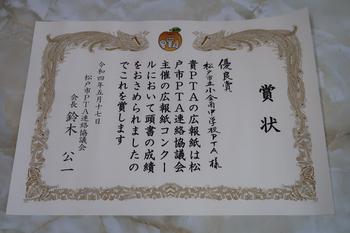 賞状
優良賞
松戸市立小金南中学校PTA 様
貴PTAの広報紙は松
戸市PTA連絡協議会
主催の広報紙コンクー
ルにおいて頭書の成績
をおさめられましたの
でこれを賞します
令和四年五月十七日
松戸市PTA連絡協議会
会長 鈴木 公一